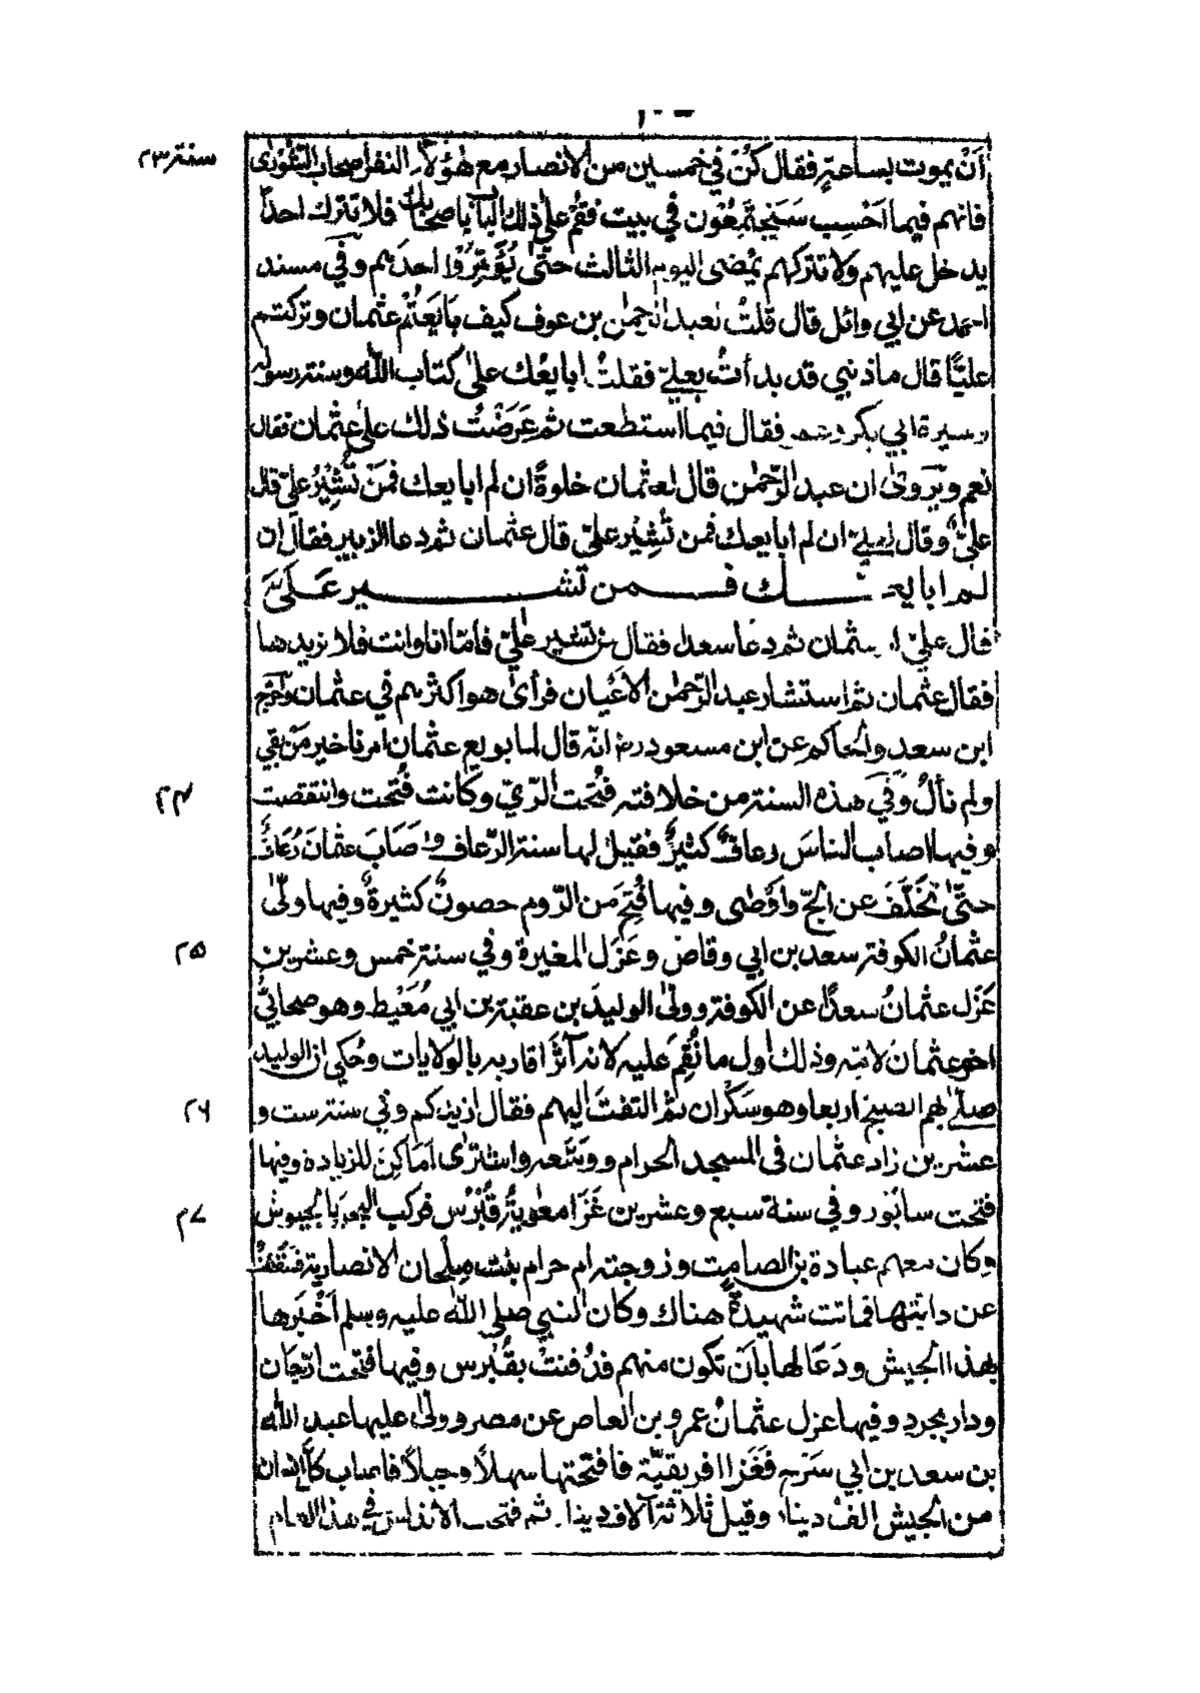 ١٠٠
سنة ٢٣
أَنْ يموت بساعةٍ فقال كُنْ في خمسين من الانصار مع هٰؤلاء النفر اصحاب الشورى
فانهم فيما اَحْسِب سَيَجْتَمِعُون في بيت فقُمْ على ذلك الباب باصحابك فلا تترك احداً
يدخل عليهم ولا تتركهم يمضى اليوم الثالث حتّى يُؤَمِّرُوا احدهم وفي مسند
احمد عن ابي وائل قال قلتُ لعبد الرحمٰن بن عوف كيف بَايَعْتُمْ عثمان وتركتم
عليًّا قال ماذنبي قد بدأتُ بعليّ فقلتُ ابايعُك علىٰ كتاب الله وسنة رسوله
وسيرة ابي بكر وعمر فقال فيما استطعت ثم عَرَضْتُ ذلك علىٰ عثمان فقال
نعم ويُروىٰ ان عبد الرّحمٰن قال لعثمان خلوةً ان لم ابايعك فمَنْ تُشِيْرُ عليّ قال
عليٌّ وقال لعليّ ان لم ابايعك فمن تُشِيْر عليّ قال عثمان ثم دعا الزبير فقال ان
لم ابايعك فمن تشير عَلَيَّ
قال عليّ او عثمان ثم دعا سعدا فقال من تشير عليّ فامّا انا وانت فلا نريدها
فقال عثمان ثم استشار عبد الرّحمٰن الاَعْيان فرأىٰ هوا اكثرهم في عثمان وآخرج
ابن سعد والحاكم عن ابن مسعود رض انّه قال لما بويع عثمان امرنا خير مَنْ بقي
٢٤
ولم نألُ وَفي هذه السنة من خلافته فُتحت الرّيّ وكانت فُتحت وانتقضت
وفيها اصاب الناسَ رعافٌ كثيرٌ فقيل لها سنة الرّعاف واَصَابَ عثمانَ رُعَافٌ
حتّىٰ تَخَلَّفَ عن الحجّ واَوْصٰى وفيها فُتِحَ مَن الرّوم حصونٌ كثيرةٌ وفيها ولّىٰ
٢٥
عثمانُ الكوفة سعد بن ابي وقاص وعَزَل المغيرة وفي سنة خمس وعشرين
عَزَل عثمانُ سعدًا عن الكوفة وولّىٰ الوليدَ بن عقبة بن ابي مُعَيْط وهو صحابيٌّ
اخو عثمان لامّه وذلك اول ما نُقِمَ عليه لانه آثَرَ اقاربه بالولايات وحُكي ان الوليد
٢٦
صلّى بهم الصبح اربعا وهو سَكْران ثم التفتَ اليهم فقال ازيدكم وفي سنة ست و
عشرين زاد عثمان فى المسجد الحرام ووسّعه واشترٰى اَمَاكِنَ للزيادة وفيها
٢٧
فتحت سابُور وفي سنة سبع وعشرين غَزَا معٰوية قُبْرُس فركب البحر بالجيوش
وكان معهم عبادة بن الصامت وزوجته ام حرام بنت مِلْحان الانصارية فسقطتْ
عن دابتها فماتت شهيدةً هناك وكان النبي صلى الله عليه وسلم اَخْبَرها
بهذا الجيش ودَعَا لها بأن تكون منهم فدُفنتْ بقُبرس وفيها فتحت ارّجان
ودار بجرد وفيها عزل عثمانُ عمرو بن العاص عن مصر وولّىٰ عليها عبد الله
بن سعد بن ابي سَرْح فغَزَا افريقيّة فافتحتها سهلًا وجبلًا فاصاب كلُّ انسان
من الجيش الف دينار وقيل ثلاثة آلاف دينار ثم فتحت الاندلس في هذا العام